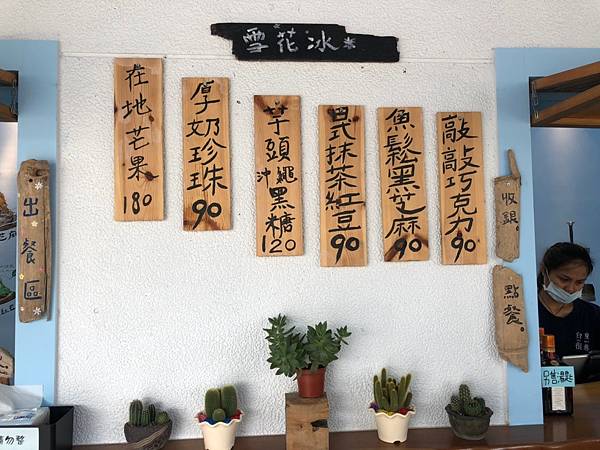 雪花冰
在地芒果
180
厚奶珍珠
90
芋頭
沖繩
黑糖
120
日式抹茶紅豆
90
魚鬆黑芝麻
90
敲敲巧克力
90
出餐區
收銀
點餐
另售湯匙
請勿